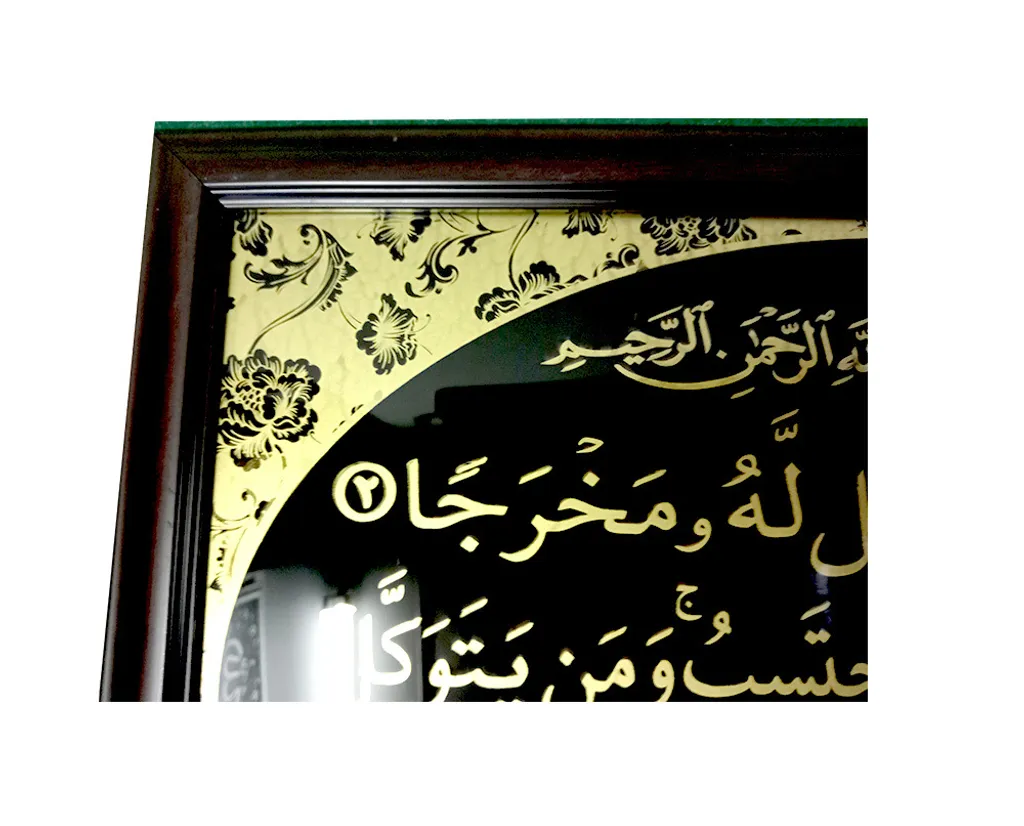 ٱلرَّحْمَٰنِ ٱلرَّحِيمِ
لَّهُۥ مَخْرَجًا ٢
يَحْتَسِبُ ۚ وَمَن يَتَوَكَّلْ